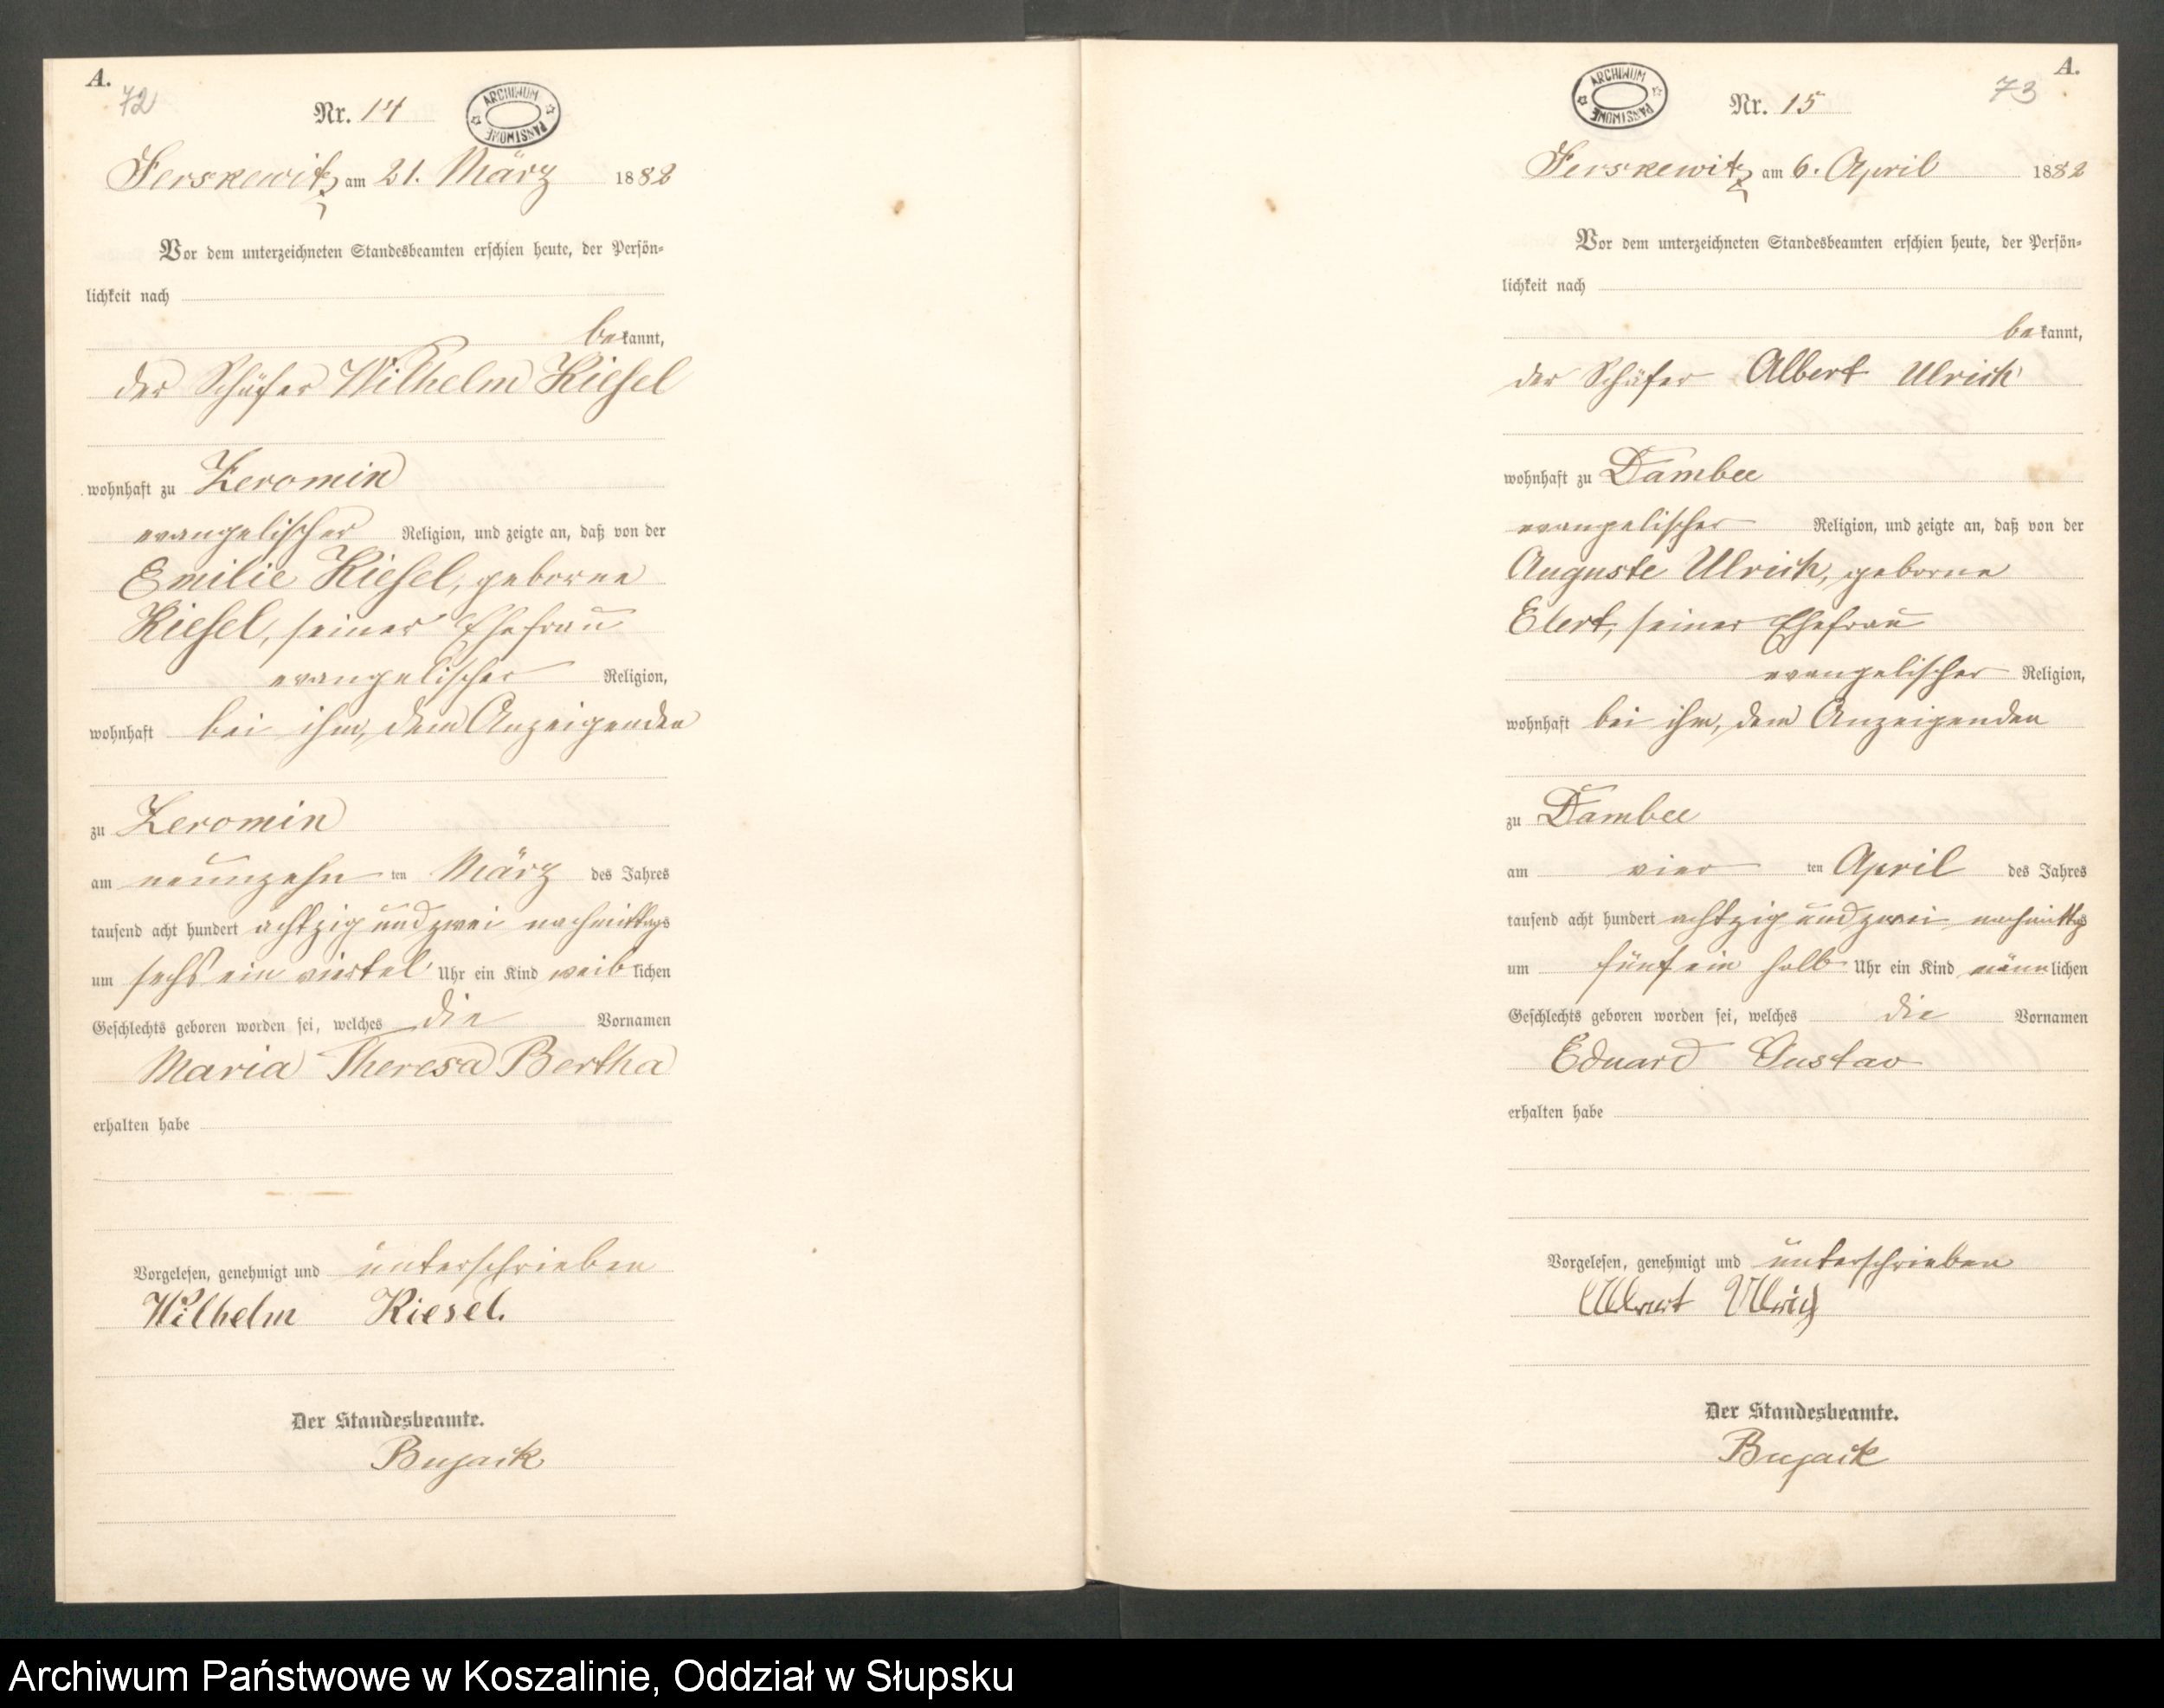 A.
72
Nr. 14
ARCHIWUM PAŃSTWOWE
Jerskewitz am 21. März 1882
Vor dem unterzeichneten Standesbeamten erschien heute, der Persön-
lichkeit nach
bekannt,
der Schäfer Wilhelm Kiesel
wohnhaft zu Zeromin
evangelischer Religion, und zeigte an, daß von der
Emilie Kiesel, geborne
Kiesel, seiner Ehefrau
evangelischer Religion,
wohnhaft bei ihm, dem Anzeigenden
zu Zeromin
am neunzehn ten März des Jahres
tausend acht hundert achtzig und zwei nachmittags
um sechs ein viertel Uhr ein Kind weiblichen
Geschlechts geboren worden sei, welches die Vornamen
Maria Theresa Bertha
erhalten habe
Vorgelesen, genehmigt und unterschrieben
Wilhelm Kiesel.
Der Standesbeamte.
Bujack
A.
73
Nr. 15
ARCHIWUM PAŃSTWOWE
Jerskewitz am 6. April 1882
Vor dem unterzeichneten Standesbeamten erschien heute, der Persön-
lichkeit nach
bekannt,
der Schäfer Albert Ulrich
wohnhaft zu Dambee
evangelischer Religion, und zeigte an, daß von der
Auguste Ulrich, geborne
Elert, seiner Ehefrau
evangelischer Religion,
wohnhaft bei ihm, dem Anzeigenden
zu Dambee
am vier ten April des Jahres
tausend acht hundert achtzig und zwei nachmittags
um fünf ein halb Uhr ein Kind männlichen
Geschlechts geboren worden sei, welches die Vornamen
Eduard Gustav
erhalten habe
Vorgelesen, genehmigt und unterschrieben
Der Standesbeamte.
Bujack
Archiwum Państwowe w Koszalinie, Oddział w Słupsku